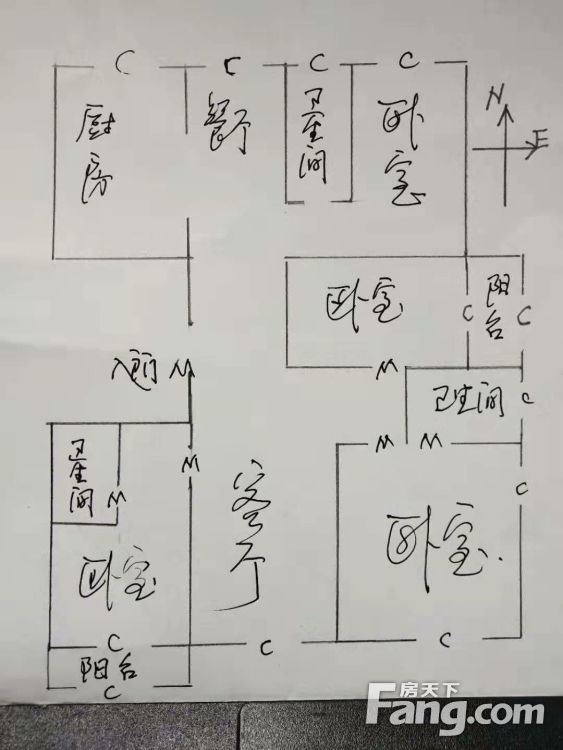 C C C C
厨房
餐厅
卫生间
卧室
N
E
卧室
C
阳台
C
入户门 M
M
卫生间
C
卫生间
M
M
客厅
M M
C
卧室
卧室
C
C
C
阳台
C
房天下
Fang.com